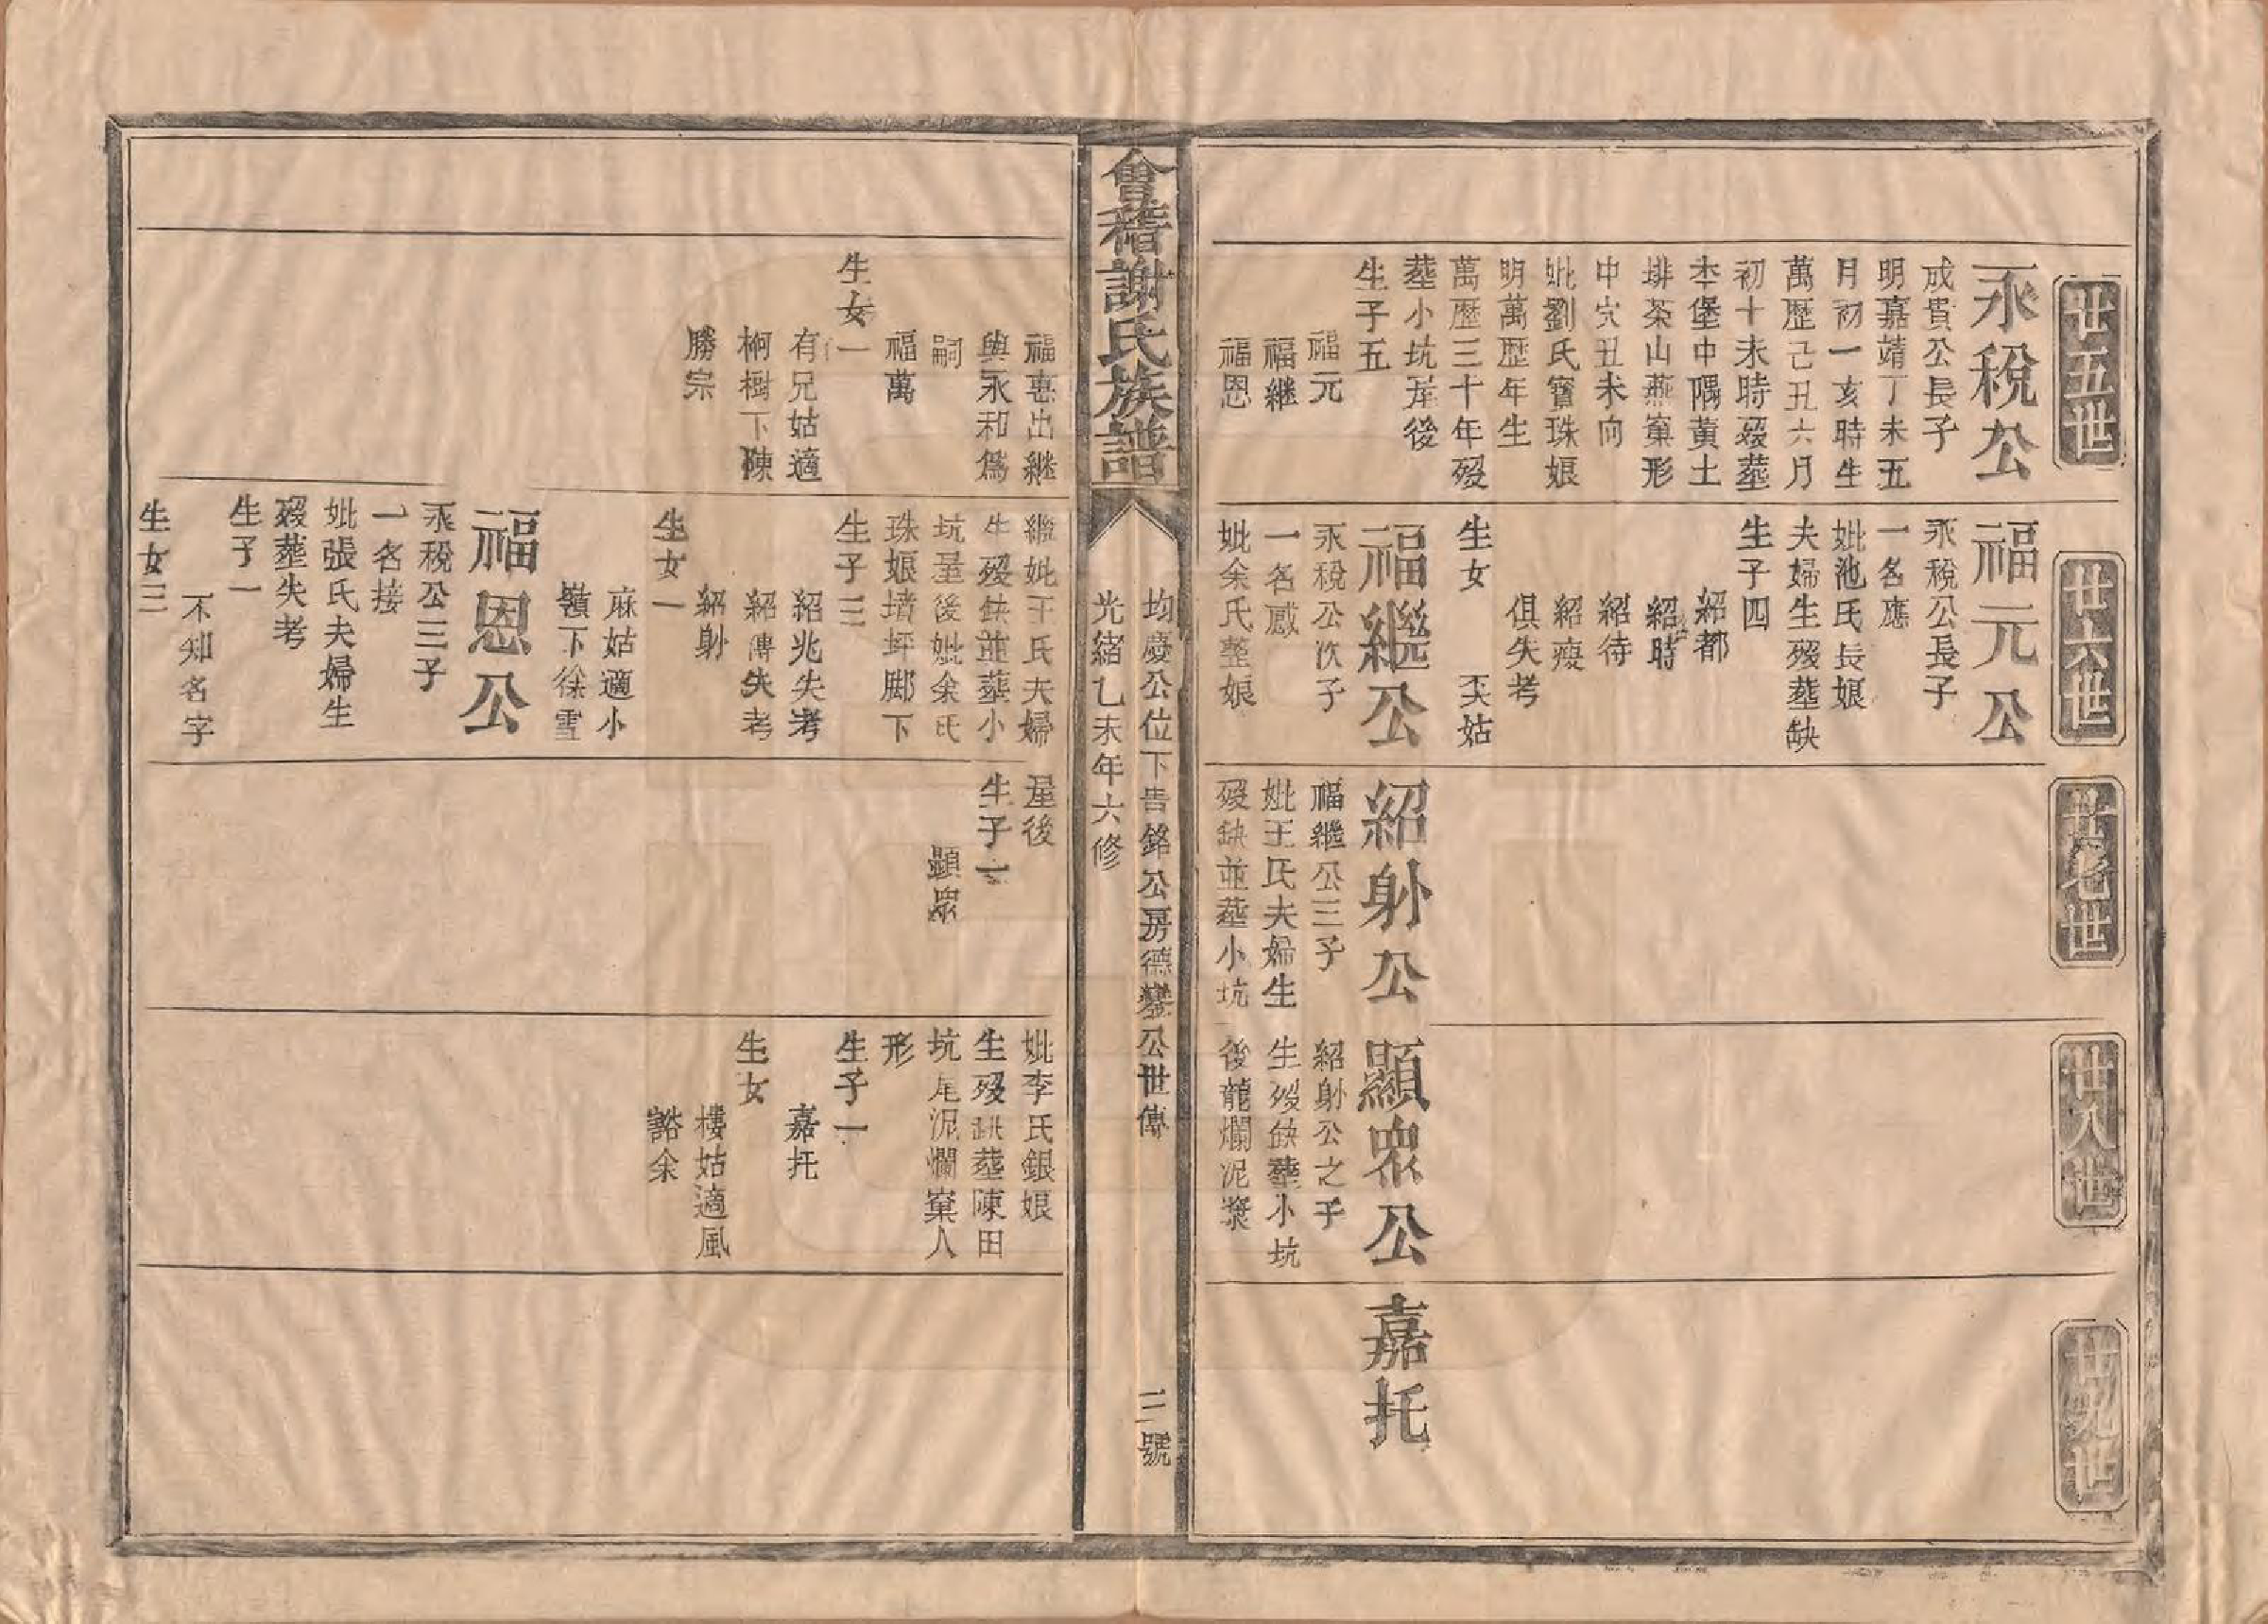 廿五世
永稅公
成貴公長子
明嘉靖丁未五
月初一亥時生
萬歷己丑六月
初十未時歿塟
本堡中隅黃土
排茶山燕窠形
中穴丑未向
妣劉氏寶珠娘
明萬歷年生
萬歷三十年歿
塟小坑㞗後
生子五
福元
福継
福恩
廿六世
福元公
永稅公長子
一名應
妣池氏長娘
夫婦生歿塟缺
生子四
紹都
紹時
紹待
紹㾿
俱失考
生女
天姑
福繼公
永稅公次子
一名感
妣余氏整娘
廿七世
紹射公
福繼公三子
妣王氏夫婦生
歿缺並塟小坑
廿八世
顯眾公
紹射公之子
生歿缺塟小坑
後龍爛泥漿
廿九世
嘉托
會稽謝氏族譜
均慶公位下告銘公房德鑾公世傳
二號
光緒乙未年六修
福惠出継
與永和為
嗣
福萬
生女一
有兄姑適
桐樹下陳
勝宗
繼妣王氏夫婦
生歿缺並塟小
坑㞗後妣余氏
珠娘墳坪脚下
生子三
紹兆失考
紹傳失考
紹射
生女一
麻姑適小
嶺下徐雪
福恩公
永稅公三子
一名接
妣張氏夫婦生
歿塟失考
生子一
不知名字
生女三
㞗後
生子一
顯眾
妣李氏銀娘
生歿缺塟陳田
坑尾泥爛窠人
形
生子一
嘉托
生女
樓姑適風
谿余